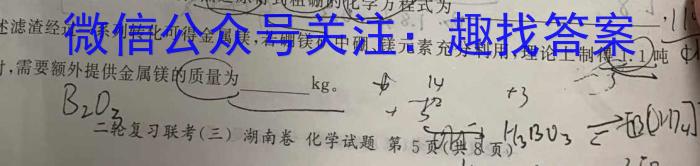 的化学方程式为
微信公众号关注：趣找答案
述滤渣经过一系列转化可得金属镁，若硼镁矿中硼、镁元素充分利用，理论上制得1.1吨
时，需要额外提供金属镁的质量为 kg。
14
+3
B₂O₃
H₃BO₃
二轮复习联考(三) 湖南卷 化学试题 第5页(共8页)